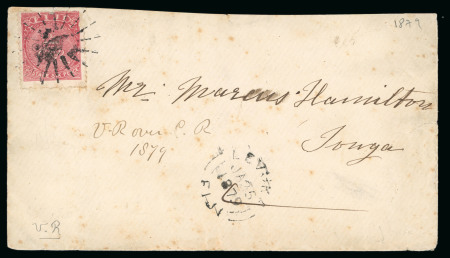 FIJI
1879
Mr. Marcus Hamilton
Tonga
V.R over C.R
1879
LEVUKA
FIJI
V.R